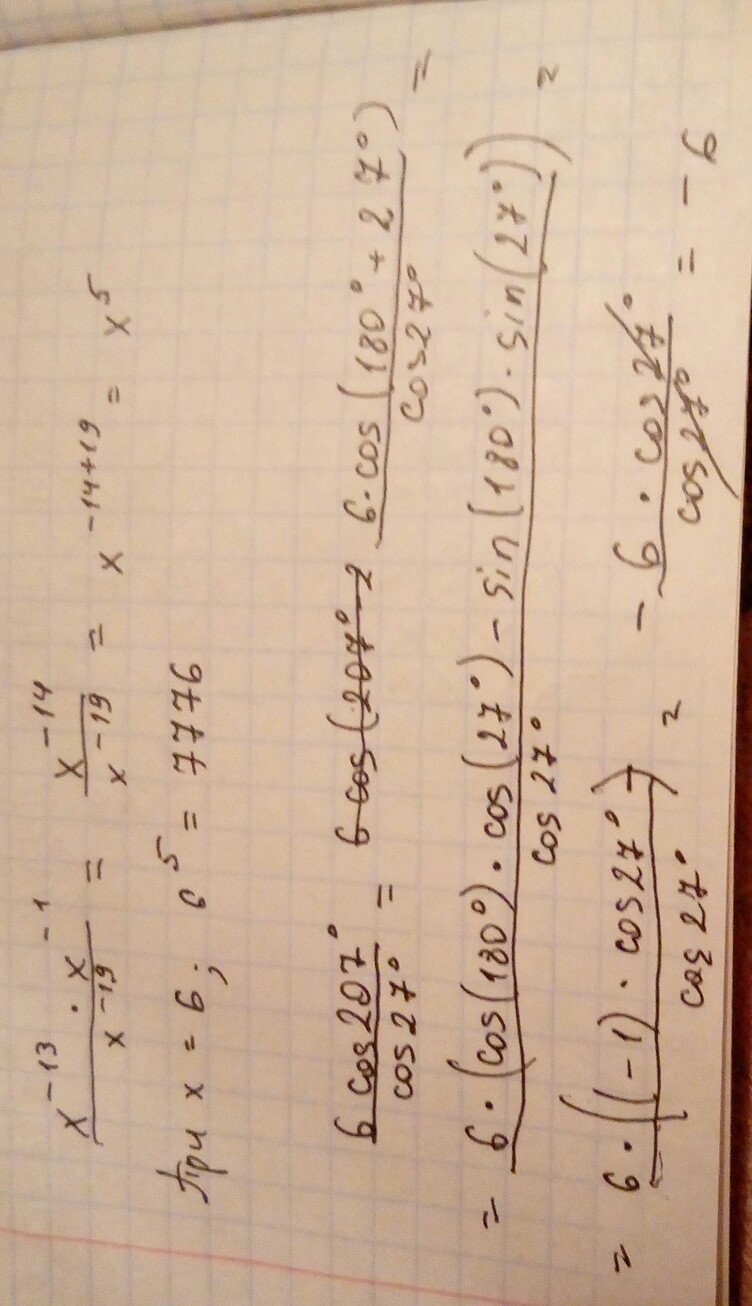 x⁻¹³ · x⁻¹ / x⁻¹⁹ = x⁻¹⁴ / x⁻¹⁹ = x⁻¹⁴⁺¹⁹ = x⁵
При x = 6; 6⁵ = 7776
6 cos207° / cos27° = 6 cos(207° 2 6·cos(180° + 27°) / cos27° =
= 6·(cos(180°)·cos(27°) - sin(180°)·sin(27°)) / cos27° =
= 6·((-1)·cos27°) / cos27° = - 6·cos27° / cos27° = -6